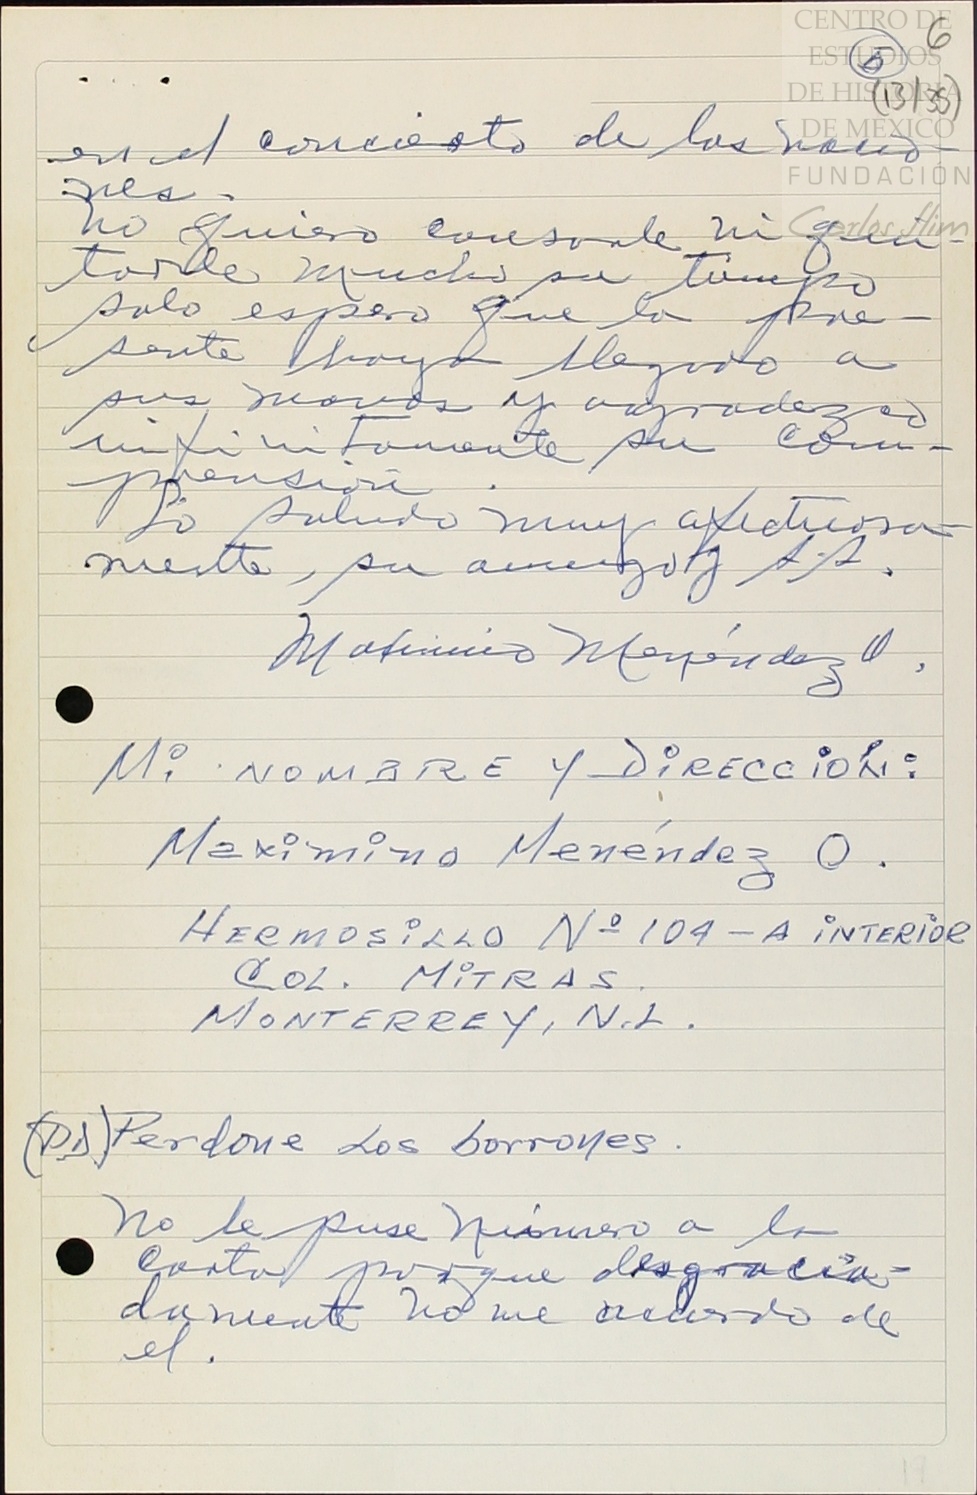 CENTRO DE
ESTUDIOS
DE HISTORIA
DE MÉXICO
FUNDACIÓN
Carlos Slim
6
5
(13/35)
. . . .
en el concierto de las nacio-
nes.
No quiero cansarle ni qui-
tarle mucho su tiempo
solo espero que la pre-
sente haya llegado a
sus manos y agradezco
infinitamente su com-
prensión.
Lo saludo muy afectuosa-
mente, su amigo y S.S.
Maximino Menéndez O.
Mi NOMBRE Y DiRECCiÓN:
Maximino Menéndez O.
HERMOSiLLO Nº 104-A iNTERiOR
COL. MiTRAS.
MONTERREY, N.L.
(PD) Perdone los borrones.
No le puse número a la
carta porque desgracia-
damente no me acuerdo de
el.
17